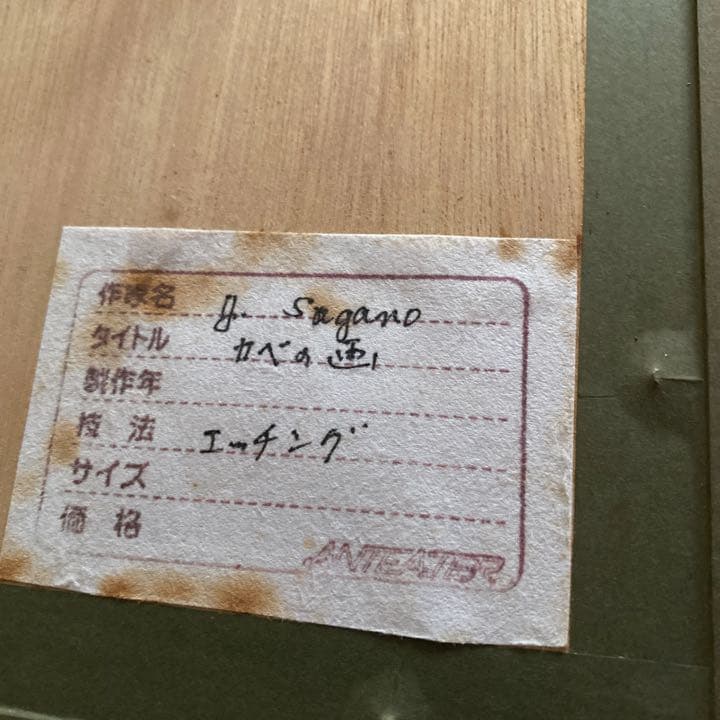 作家名 J. Sagano
タイトル カベの
製作年
技法 エッチング
サイズ
価格
ANTEATER